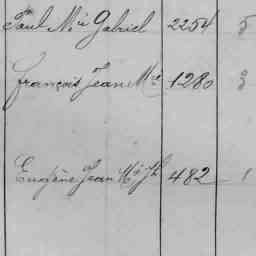 Paul M.ie Gabriel 2254 5
François Jean M.ie 1280 3
Eugène Jean M.ie Jh 482 1